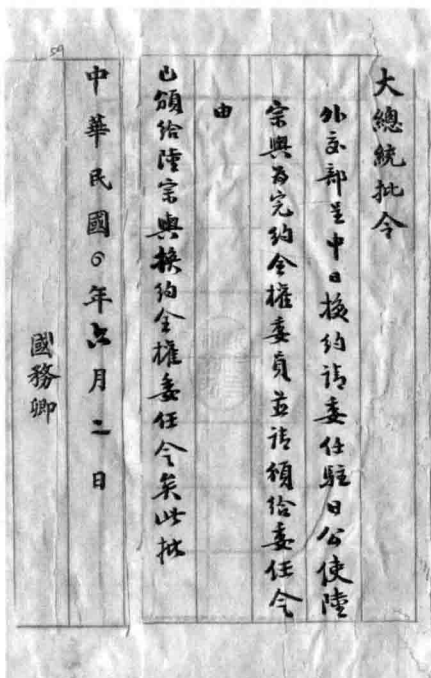 大總統批令
外交部呈中日換約請委任駐日公使陸
宗輿為完約全權委員並請頒給委任令
由
已頒給陸宗輿換約全權委任令矣此批
中華民國 年六月二日
國務卿